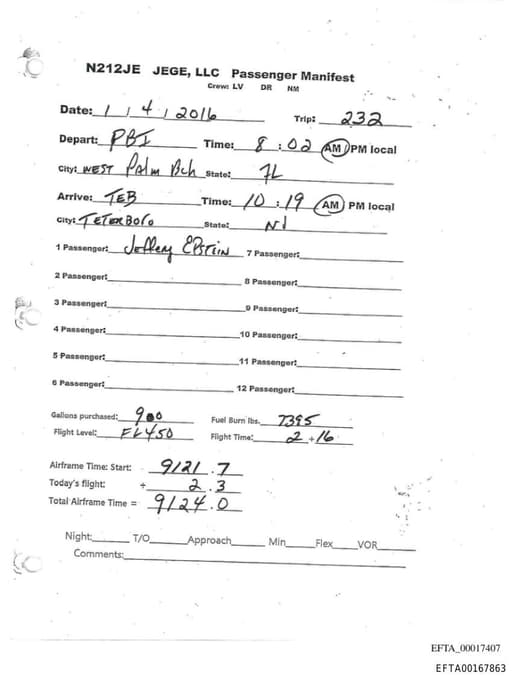 N212JE JEGE, LLC Passenger Manifest
Crew: LV DR NM
Date: 1 / 4 / 2016 Trip: 232
Depart: PBI Time: 8 : 02 AM PM local
City: WEST Palm Bch State: FL
Arrive: TEB Time: 10 : 19 AM PM local
City: TETERBORO State: NJ
1 Passenger: Jeffrey EPSTEIN 7 Passenger:
2 Passenger: 8 Passenger:
3 Passenger: 9 Passenger:
4 Passenger: 10 Passenger:
5 Passenger: 11 Passenger:
6 Passenger: 12 Passenger:
Gallons purchased: 900 Fuel Burn lbs. 7395
Flight Level: FL450 Flight Time: 2 +16
Airframe Time: Start: 9121 .7
Today's flight: + 2 .3
Total Airframe Time = 9124 .0
Night: T/O Approach Min Flex VOR
Comments:
EFTA_00017407
EFTA00167863